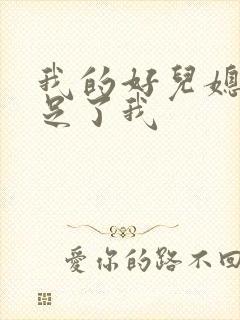 我的好兒媳
足了我
愛你的路不回